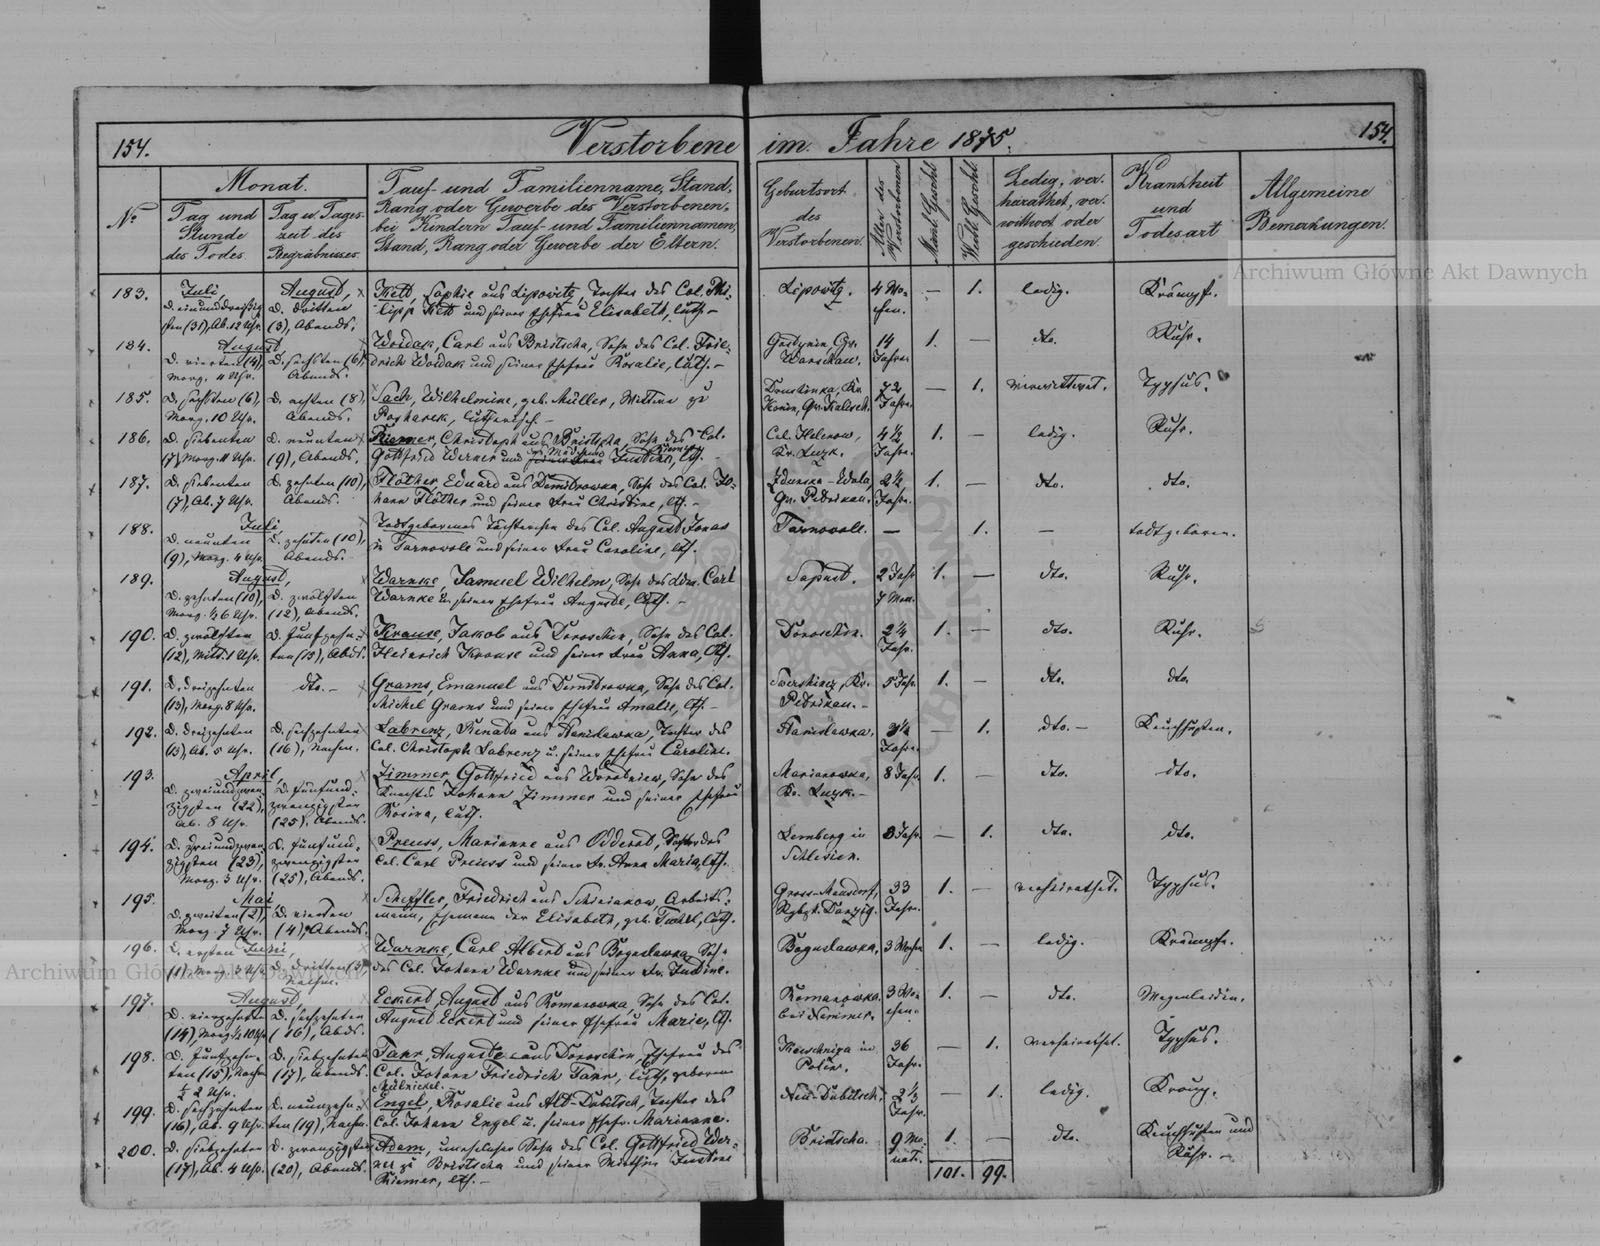 154.
Verstorbene im Jahre 1875.
154.
No
Monat.
Tag und Stunde des Todes
Tag u. Tageszeit des Begräbnisses
Tauf- und Familienname, Stand,
Rang oder Gewerbe des Verstorbenen,
bei Kindern Tauf- und Familiennamen,
Stand, Rang oder Gewerbe der Eltern.
Geburtsort
des
Verstorbenen.
Alter des Verstorbenen
Männl. Geschl.
Weibl. Geschl.
Ledig, ver-
heirathet, ver-
wittwet oder
geschieden.
Krankheit
und
Todesart
Allgemeine
Bemerkungen.
183.
Juli,
August,
D. einunddreißig-
sten (31), Ab. 12 Uhr.
D. dritten
(3), Abends.
Sophie aus Lipowitz, Tochter des Col. Phi-
lipp und seiner Ehefrau Elisabeth, luth.-
Lipowitz.
4 Wo-
chen.
—
1.
ledig.
Krämpfe.
184.
August
D. vierten (4),
Morg. 4 Uhr.
D. sechsten (6),
Abends.
Woidak, Carl aus Bristscha, Sohn des Col. Frie-
drich Woidak und seiner Ehefrau Rosalie, luth.-
Gostynin, Gv.
Warschau.
14
Jahre.
1.
—
dto.
Ruhr.
185.
D. sechsten (6),
Morg. 10 Uhr.
D. achten (8),
Abends.
Sach, Wilhelmine, geb. Müller, Wittwe zu
lutherisch.-
Konin, Gv. Kalisch.
72
Jahre.
—
1.
verwittwet.
Typhus.
186.
D. siebenten
(7), Morg. 11 Uhr.
D. neunten
(9), Abends.
Kiemer, Christoph aus Bristscha, Sohn des Col.
Gottfried Werner und Justine, lth.-
Col. Helenow,
Kr. Luzk.
4½
Jahre.
1.
—
ledig.
Ruhr.
187.
D. siebenten
(7), Ab. 7 Uhr.
D. zehnten (10),
Abends.
Flöther, Eduard aus Dembrowka, Sohn des Col. Jo-
hann Flöther und seiner Frau Christine, lth.-
Zdunska-Wola
Gv. Petrikau.
2¼
Jahre.
1.
—
dto.
dto.
188.
Juli,
D. neunten
(9), Morg. 4 Uhr.
D. zehnten (10),
Abends.
Todtgeborenes Töchterchen des Col. August Jonas
in Tarnowole und seiner Frau Caroline, lth.
Tarnowole.
—
1.
—
todtgeboren.
189.
August,
D. zehnten (10),
Morg. ½ 6 Uhr.
D. zwölften
(12), Abends.
Warnke, Samuel Wilhelm, Sohn des Carl
Warnke u. seiner Ehefrau Auguste, lth.-
Sapust.
2 Jahr
7 Mon.
1.
—
dto.
Ruhr.
190.
D. zwölften
(12), Mitt. 1 Uhr.
D. fünfzehn-
ten (15), Abds.
Krause, Jakob aus Doroschin, Sohn des Col.
Heinrich Krause und seiner Frau Anna, lth.
Doroschin.
2¼
Jahr.
1.
—
dto.
Ruhr.
191.
D. dreizehnten
(13), Morg. 8 Uhr.
dto.-
Grams, Emanuel aus Dembrowka, Sohn des Col.
Michel Grams und seiner Ehefrau Amalie, lth.-
Petrikau.-
5 Jahr.
1.
—
dto.
dto.
192.
D. dreizehnten
(13), Ab. 5 Uhr.
D. sechzehnten
(16), Nachm.
Labrenz, Renata aus Stanislawka, Tochter des
Col. Christoph Labrenz u. seiner Ehefrau Caroline.
Stanislawka.
3¼
Jahre.
—
1.
dto.-
Keuchhusten.
193.
April,
D. zweiundzwan-
zigsten (22),
Ab. 8 Uhr.
D. fünfund-
zwanzigsten
(25), Abends.
Zimmer, Gottfried aus Sohn des
Knechts Johann Zimmer und seiner Ehefrau
Rosina, luth.
Marianowka,
Kr. Luzk.-
8 Jahr.
1.
—
dto.
dto.
194.
D. dreiundzwan-
zigsten (23),
Morg. 3 Uhr.
D. fünfund-
zwanzigsten
(25), Abends.
Preuss, Marianne aus Tochter des
Col. Carl Preuss und seiner Fr. Anna Maria, lth.
Lemberg in
Schlesien.
3 Jahr.
—
1.
dto.
dto.
195.
Mai
D. zweiten (2),
Morg. 7 Uhr.
D. vierten
(4), Abends.
Scheffler, Friedrich aus Arbeits-
mann, Ehemann der Elisabeth, geb. luth.
Gross-Mausdorf,
Rgbzk. Danzig.
33
Jahre.
1.
—
verheirathet.
Typhus.
196.
D. ersten Juni,
(1), Morg. 3 Uhr.
D. dritten (3),
Nachm.
Warnke, Carl Albert aus Boguslawka, Sohn
des Col. Johann Warnke und seiner Fr. Justine.
Boguslawka.
3 Wochen
1.
—
ledig.
Krämpfe.
197.
August,
D. vierzehnten
(14), Morg. ½ 10 Uhr
D. sechzehnten
(16), Abds.
Eckert, August aus Romanowka, Sohn des Col.
August Eckert und seiner Ehefrau Marie, lth.
Romanowka
3 Wo-
chen.
1.
—
dto.
Magenleiden.
198.
D. fünfzehn-
ten (15), Nachm
½ 2 Uhr.
D. siebzehnten
(17), Abends.
Tarr, Auguste aus Doroschin, Ehefrau des
Col. Johann Friedrich Tarr, luth., geborene
in
Polen.
36
Jahre.
—
1.
verheirathet.
Typhus.
199.
D. sechzehnten
(16), Ab. 9 Uhr.
D. neunzehn-
ten (19), Nachm.
Engel, Rosalie aus Alt-Dubitsch, Tochter des
Col. Johann Engel u. seiner Ehefr. Marianne.
Neu-Dubitsch.
2⅓
Jahr.
—
1.
ledig.
Kramp.
200.
D. siebzehnten
(17), Ab. 4 Uhr.
D. zwanzigsten
(20), Abends.
Adam, unehelicher Sohn des Col. Gottfried Wer-
ner zu Bristscha und seiner Justine
Kiemer, lth.-
Bristscha.
9 Mo-
nat.
1.
—
dto.
Keuchhusten und
Ruhr.-
101.
99.
Archiwum Główne Akt Dawnych
Archiwum Główne Akt Dawnych